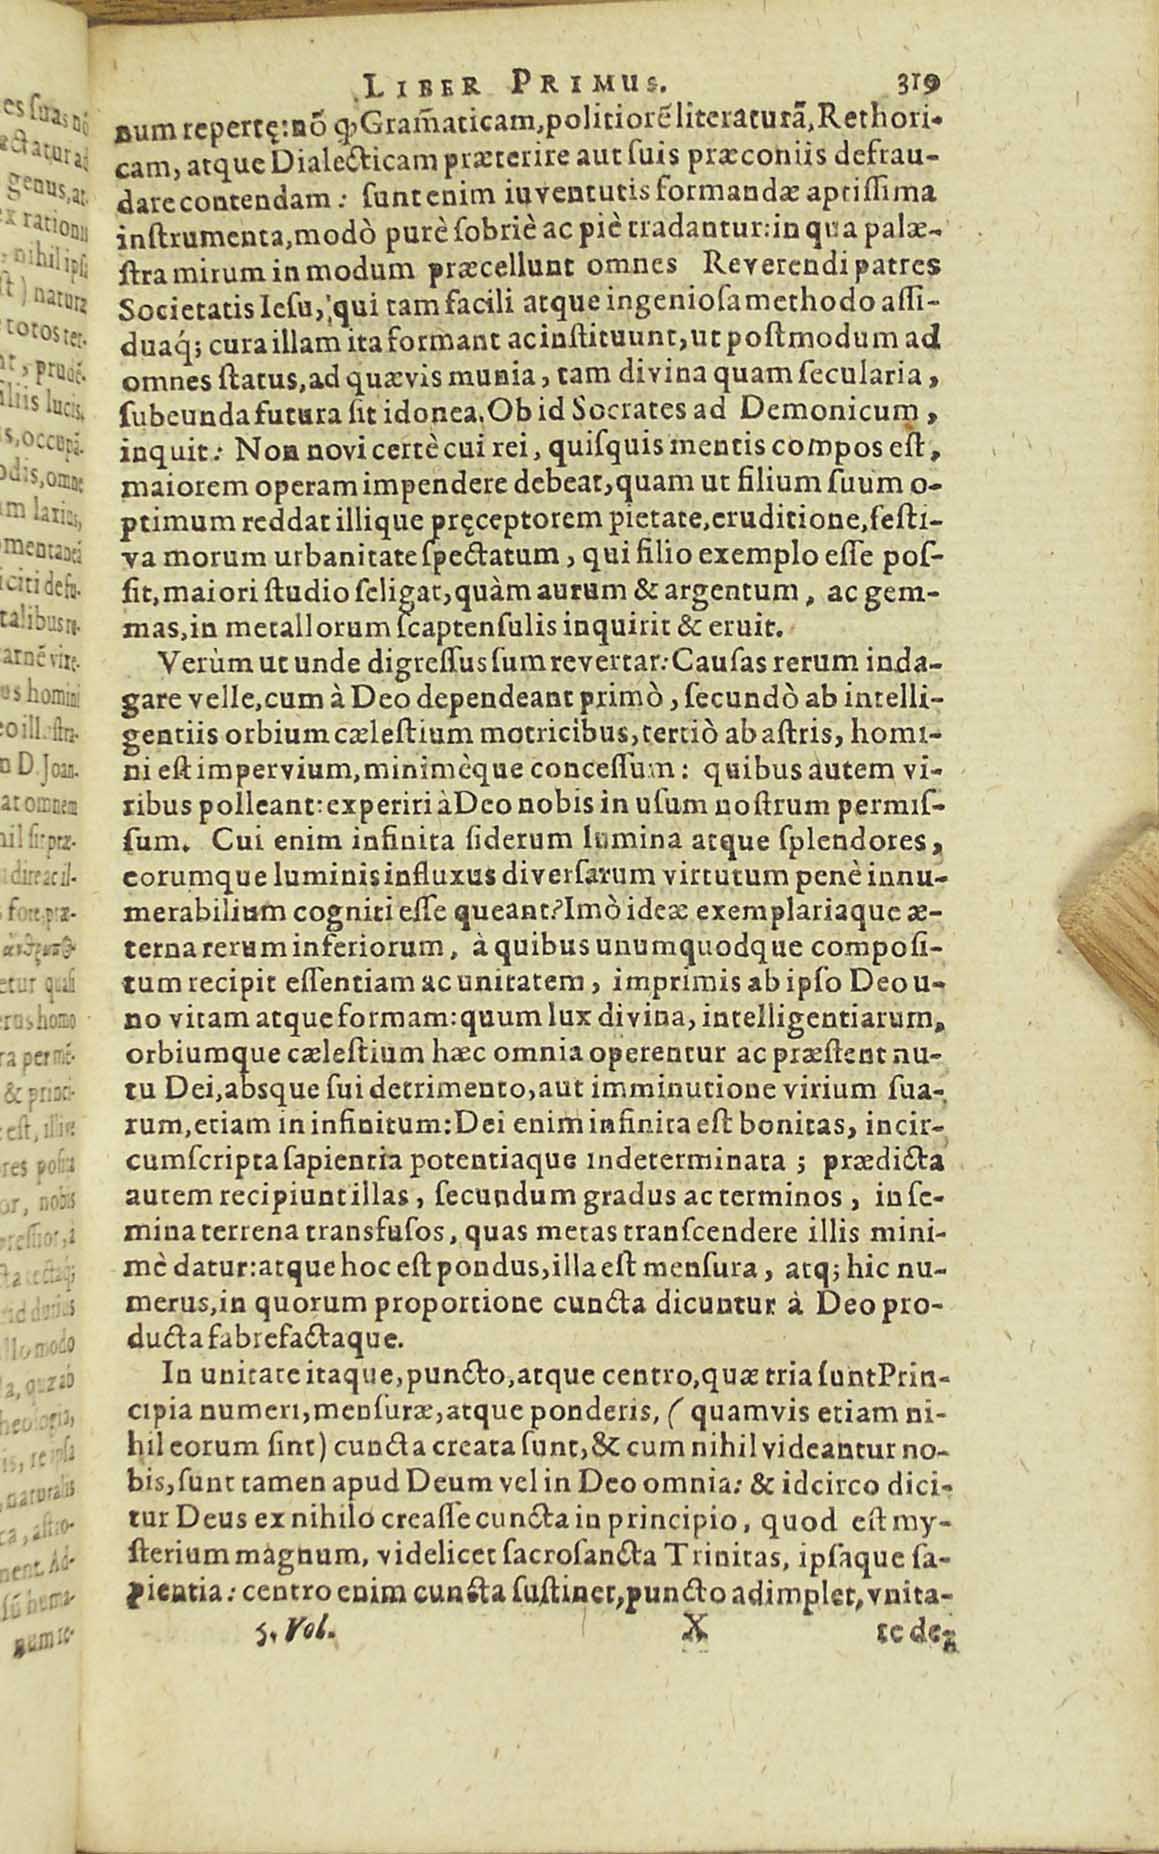 LIBER PRIMUS. 319
num repertę: nõ ꝙ Gram̃aticam, politiorẽ literaturã, Rethori-
cam, atque Dialecticam præterire aut suis præconiis defrau-
dare contendam: sunt enim iuventutis formandæ aptissima
instrumenta, modò purè sobriè ac piè tradantur: in qua palæ-
stra mirum in modum præcellunt omnes Reverendi patres
Societatis Iesu, qui tam facili atque ingeniosa methodo assi-
duaq́; cura illam ita formant ac instituunt, ut postmodum ad
omnes status, ad quævis munia, tam divina quam secularia,
subeunda futura sit idonea. Ob id Socrates ad Demonicum,
inquit: Non novi certè cui rei, quisquis mentis compos est,
maiorem operam impendere debeat, quam ut filium suum o-
ptimum reddat illique pręceptorem pietate, eruditione, festi-
va morum urbanitate spectatum, qui filio exemplo esse pos-
sit, maiori studio seligat, quàm aurum & argentum, ac gem-
mas, in metallorum scaptensulis inquirit & eruit.
Verùm ut unde digressus sum revertar: Causas rerum inda-
gare velle, cum à Deo dependeant primò, secundò ab intelli-
gentiis orbium cælestium motricibus, tertiò ab astris, homi-
ni est impervium, minimèque concessum: quibus autem vi-
ribus polleant: experiri à Deo nobis in usum nostrum permis-
sum. Cui enim infinita siderum lumina atque splendores,
eorumque luminis influxus diversarum virtutum penè innu-
merabilium cogniti esse queant? Imò ideæ exemplariaque æ-
terna rerum inferiorum, à quibus unumquodque composi-
tum recipit essentiam ac unitatem, imprimis ab ipso Deo u-
no vitam atque formam: quum lux divina, intelligentiarum,
orbiumque cælestium hæc omnia operentur ac præstent nu-
tu Dei, absque sui detrimento, aut imminutione virium sua-
rum, etiam in infinitum: Dei enim infinita est bonitas, incir-
cumscripta sapientia potentiaque indeterminata; prædicta
autem recipiunt illas, secundum gradus ac terminos, in se-
mina terrena transfusos, quas metas transcendere illis mini-
mè datur: atque hoc est pondus, illa est mensura, atq; hic nu-
merus, in quorum proportione cuncta dicuntur à Deo pro-
ducta fabrefactaque.
In unitate itaque, puncto, atque centro, quæ tria sunt Prin-
cipia numeri, mensuræ, atque ponderis, (quamvis etiam ni-
hil eorum sint) cuncta creata sunt, & cum nihil videantur no-
bis, sunt tamen apud Deum vel in Deo omnia: & idcirco dici-
tur Deus ex nihilo creasse cuncta in principio, quod est my-
sterium magnum, videlicet sacrosancta Trinitas, ipsaque sa-
pientia: centro enim cuncta sustinet, puncto adimplet, vnita-
5. Vol. X te de-